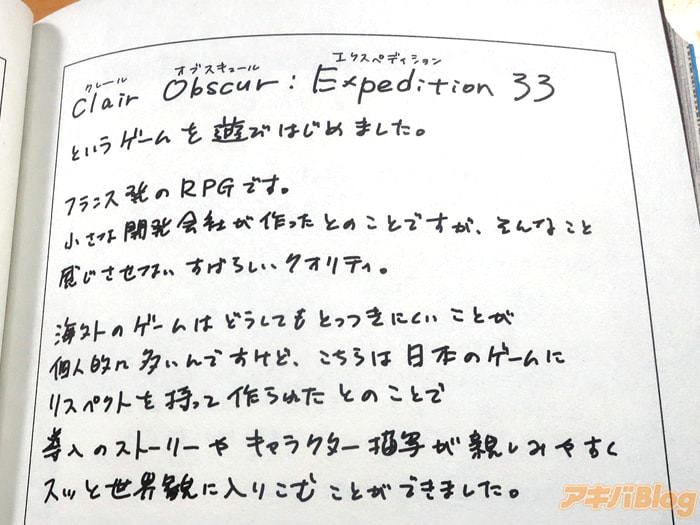 クレール オブスキュール エクスペディション
Clair Obscur : Expedition 33
というゲームを遊びはじめました。
フランス発のRPGです。
小さな開発会社が作ったとのことですが、そんなこと
感じさせないすばらしいクオリティ。
海外のゲームはどうしてもとっつきにくいことが
個人的に多いんですけど、こちらは日本のゲームに
リスペクトを持って作られたとのことで
導入のストーリーやキャラクター描写が親しみやすく
スッと世界観に入りこむことができました。
アキバBlog